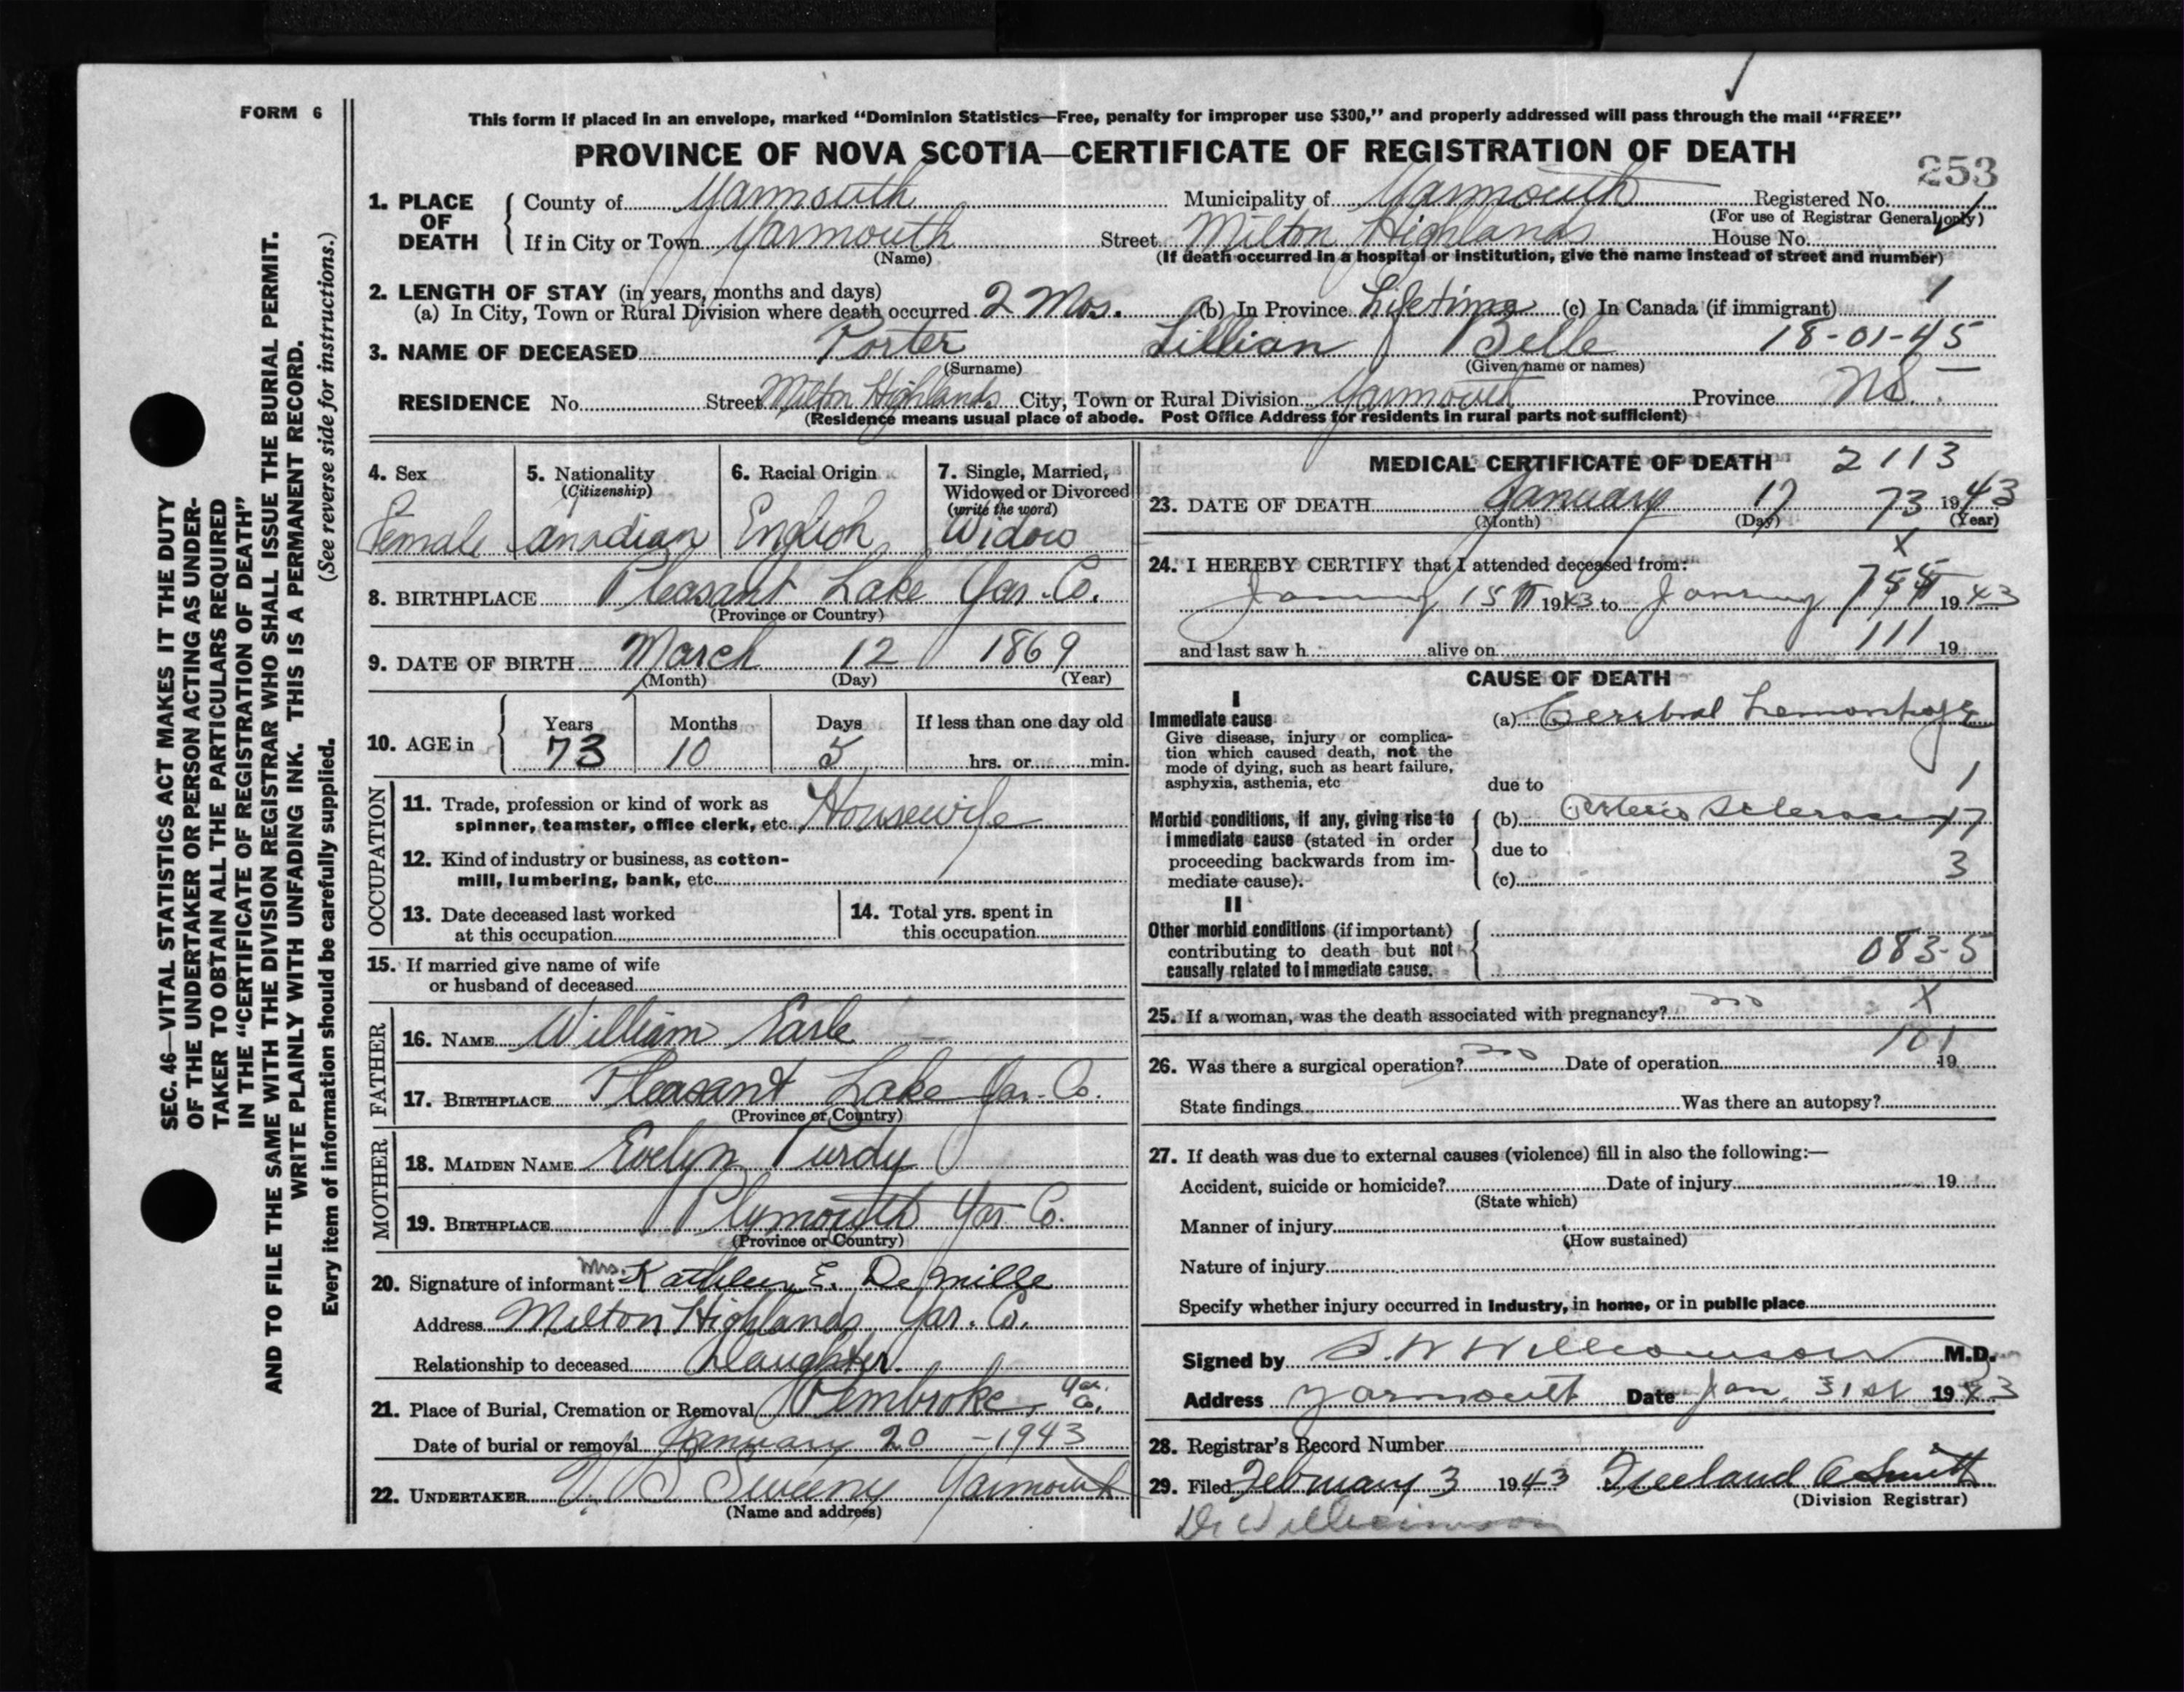 FORM 6
This form if placed in an envelope, marked “Dominion Statistics—Free, penalty for improper use $300,” and properly addressed will pass through the mail “FREE”
PROVINCE OF NOVA SCOTIA—CERTIFICATE OF REGISTRATION OF DEATH
253
1. PLACE OF DEATH
County of Yarmouth Municipality of Yarmouth Registered No.
(For use of Registrar General only)
If in City or Town Yarmouth Street Milton Highlands House No.
(Name) (If death occurred in a hospital or institution, give the name instead of street and number)
2. LENGTH OF STAY (in years, months and days)
(a) In City, Town or Rural Division where death occurred 2 Mos. (b) In Province Lifetime (c) In Canada (if immigrant) 1
3. NAME OF DECEASED Porter Lillian Belle 18-01-45
(Surname) (Given name or names)
RESIDENCE No. Street Milton Highlands City, Town or Rural Division Yarmouth Province N.S.
(Residence means usual place of abode. Post Office Address for residents in rural parts not sufficient)
4. Sex
Female
5. Nationality
(Citizenship)
Canadian
6. Racial Origin
English
7. Single, Married,
Widowed or Divorced
(write the word)
Widow
8. BIRTHPLACE Pleasant Lake Yar. Co.
(Province or Country)
9. DATE OF BIRTH March 12 1869
(Month) (Day) (Year)
10. AGE in
Years Months Days If less than one day old
73 10 5 hrs. or min.
OCCUPATION
11. Trade, profession or kind of work as
spinner, teamster, office clerk, etc. Housewife
12. Kind of industry or business, as cotton-
mill, lumbering, bank, etc.
13. Date deceased last worked
at this occupation
14. Total yrs. spent in
this occupation
15. If married give name of wife
or husband of deceased
FATHER
16. NAME William Earle
17. BIRTHPLACE Pleasant Lake Yar. Co.
(Province or Country)
MOTHER
18. MAIDEN NAME Evelyn Purdy
19. BIRTHPLACE Plymouth Yar Co.
(Province or Country)
20. Signature of informant Mrs. Kathleen E. DeMille
Address Milton Highlands Yar. Co.
Relationship to deceased Daughter.
21. Place of Burial, Cremation or Removal Pembroke, Yar. Co.
Date of burial or removal January 20 - 1943
22. UNDERTAKER V. S Sweeny Yarmouth
(Name and address)
MEDICAL CERTIFICATE OF DEATH 2113
23. DATE OF DEATH January 17 73 1943
(Month) (Day) (Year)
X
24. I HEREBY CERTIFY that I attended deceased from:
January 15 1943 to January 1943
and last saw h alive on 111 19
CAUSE OF DEATH
I
Immediate cause
Give disease, injury or complica-
tion which caused death, not the
mode of dying, such as heart failure,
asphyxia, asthenia, etc
(a) Cerebral hemorrhage
due to 1
Morbid conditions, if any, giving rise to
immediate cause (stated in order
proceeding backwards from im-
mediate cause).
(b) Arterio Sclerosis 17
due to
(c) 3
II
Other morbid conditions (if important)
contributing to death but not
causally related to immediate cause.
083-5
X
25. If a woman, was the death associated with pregnancy? no
101
26. Was there a surgical operation? no Date of operation 19
State findings Was there an autopsy?
27. If death was due to external causes (violence) fill in also the following:—
Accident, suicide or homicide? Date of injury 19
(State which)
Manner of injury
(How sustained)
Nature of injury
Specify whether injury occurred in industry, in home, or in public place
Signed by S. W Williamson M.D.
Address Yarmouth Date Jan. 31st 1943
28. Registrar's Record Number
29. Filed February 3 1943 Freeland C Smith
(Division Registrar)
Dr Williamson
SEC. 46—VITAL STATISTICS ACT MAKES IT THE DUTY
OF THE UNDERTAKER OR PERSON ACTING AS UNDER-
TAKER TO OBTAIN ALL THE PARTICULARS REQUIRED
IN THE “CERTIFICATE OF REGISTRATION OF DEATH”
AND TO FILE THE SAME WITH THE DIVISION REGISTRAR WHO SHALL ISSUE THE BURIAL PERMIT.
WRITE PLAINLY WITH UNFADING INK. THIS IS A PERMANENT RECORD.
Every item of information should be carefully supplied. (See reverse side for instructions.)